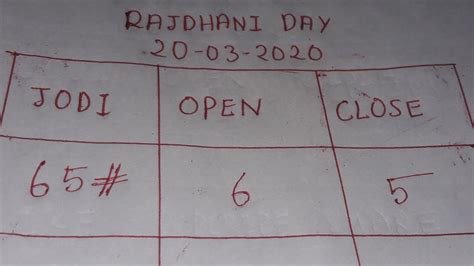 RAJDHANI DAY
20-03-2020
JODI OPEN CLOSE
65# 6 5